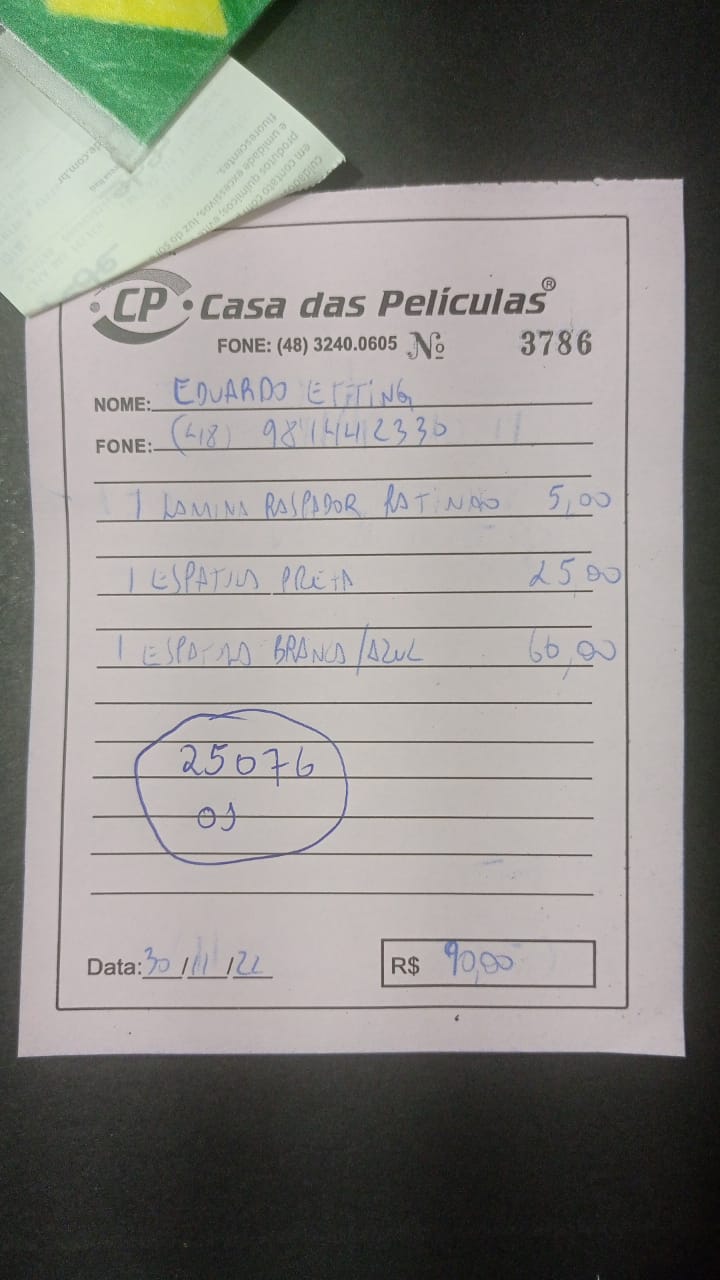 CP
Casa das Películas®
FONE: (48) 3240.0605 Nº 3786
NOME: EDUARDO
FONE: (48) 981442330
1 LAMINA RASPADOR 5,00
1 ESPATULA PRETA 25,00
1 ESPATULA BRANCA/AZUL 60,00
25076
OS
Data: 30/11/22 R$ 90,00